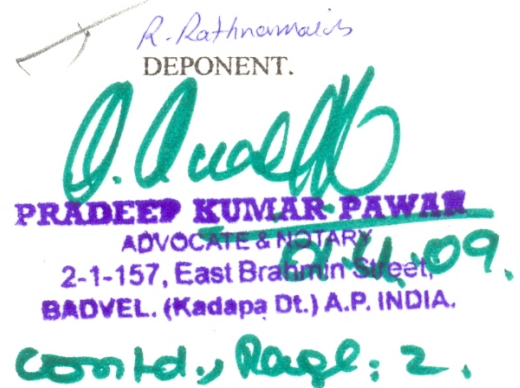 R. Rathnamaiah
DEPONENT.
PRADEEP KUMAR PAWAR
ADVOCATE & NOTARY
2-1-157, East Brahmin Street,
BADVEL. (Kadapa Dt.) A.P. INDIA.
Contd., Page: 2.